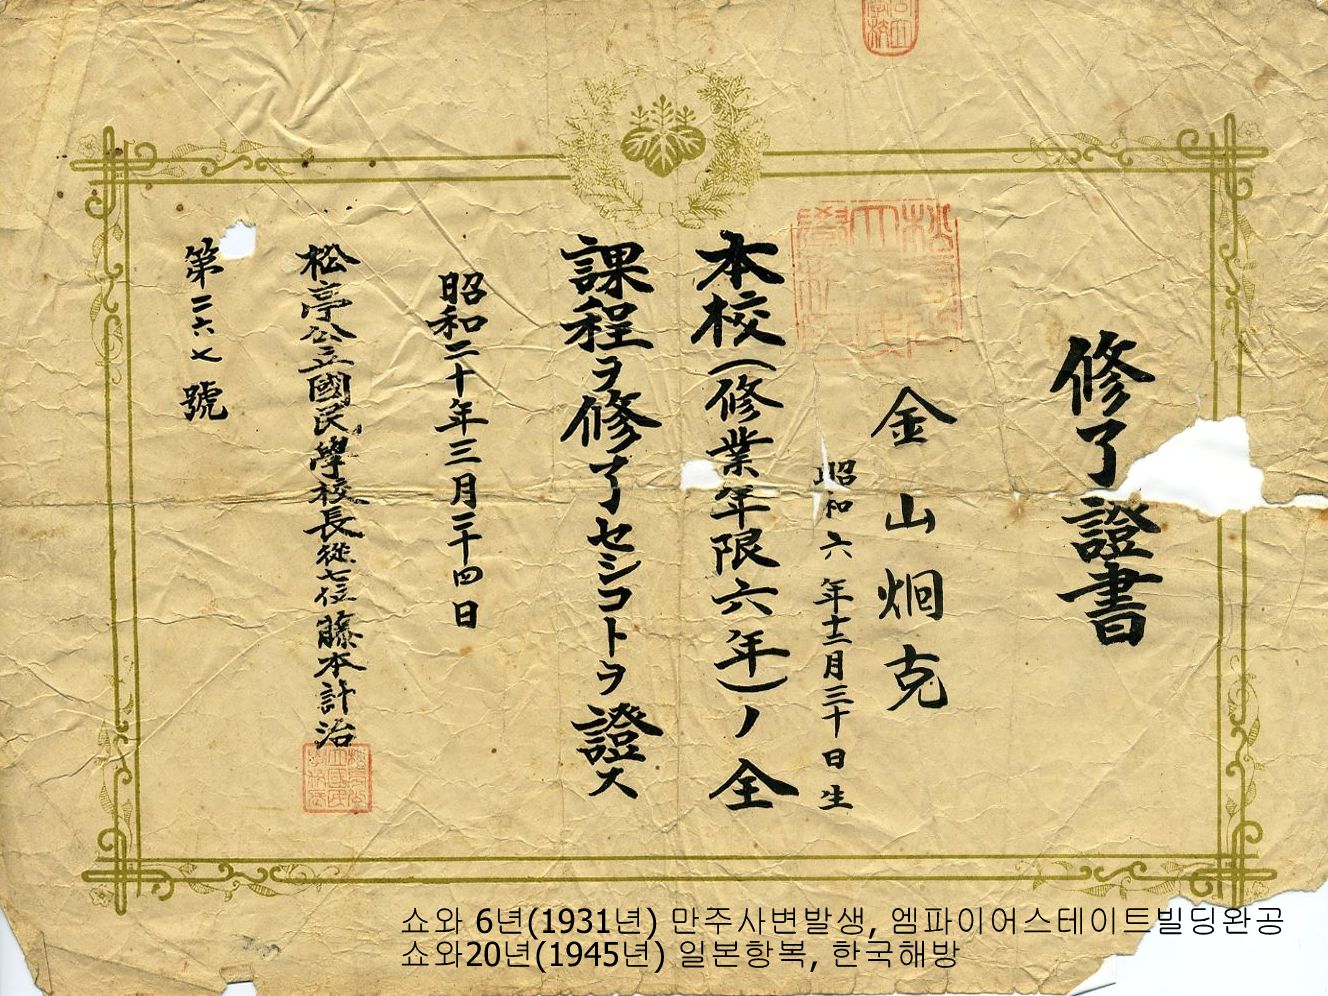 修了證書
金山炯克
昭和六年十二月三十日生
本校(修業年限六年)ノ全
課程ヲ修了セシコトヲ證ス
昭和二十年三月二十四日
松亭公立國民學校長從七位藤本計治
第二六七號
쇼와 6년(1931년) 만주사변발생, 엠파이어스테이트빌딩완공
쇼와20년(1945년) 일본항복, 한국해방